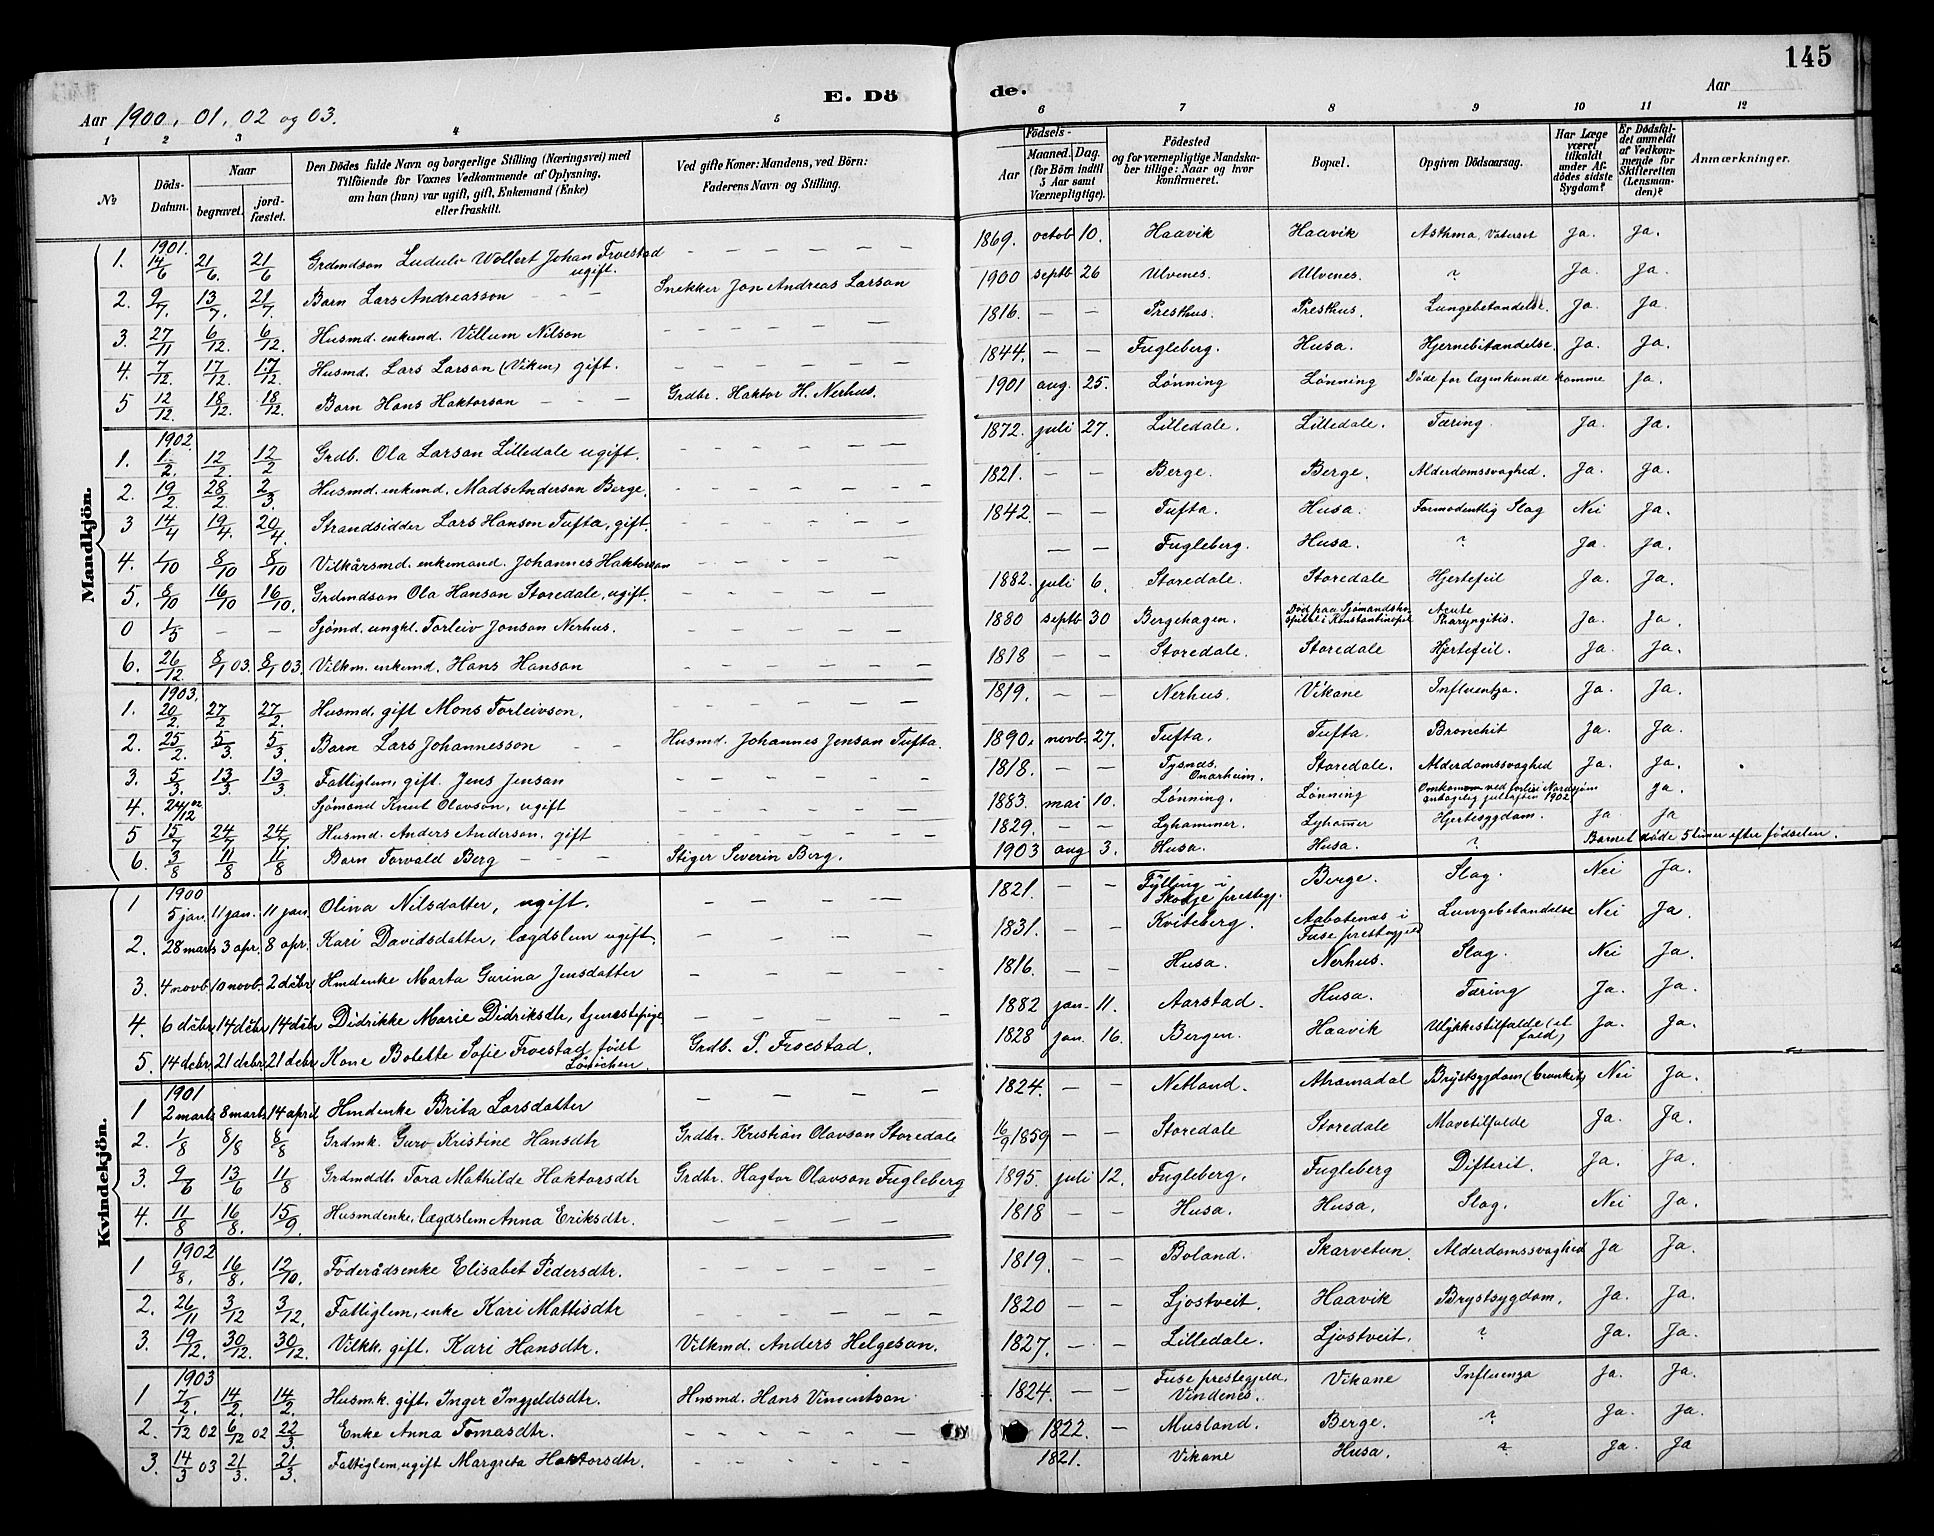 145
E. Döde.
Aar 1900, 01, 02 og 03.
Aar
1 2 3 4 5 6 7 8 9 10 11 12
No
Döds-Datum.
Naar
begravet.
jord-fæstet.
Den Dödes fulde Navn og borgerlige Stilling (Næringsvei) med
Tilföiende for Voxnes Vedkommende af Oplysning,
om han (hun) var ugift, gift, Enkemand (Enke)
eller fraskilt.
Ved gifte Koner: Mandens, ved Börn:
Faderens Navn og Stilling.
Födsels-
Aar
Maaned. Dag.
(for Börn indtil
5 Aar samt
Værnepligtige).
Födested
og for værnepligtige Mandska-
ber tillige: Naar og hvor
konfirmeret.
Bopæl.
Opgiven Dödsaarsag.
Har Læge
været
tilkaldt
under Af-
dödes sidste
Sygdom?
Er Dödsfal-
det anmeldt
af Vedkom-
mende for
Skifteretten
(Lensman-
den)?
Anmærkninger.
Mandkjön.
1901.
1. 14/6 21/6. 21/6 Grdmdson Ludulv Wollert Johan Froestad ugift. — — — — 1869. octob 10. Haavik Haavik Asthma, Vatersot Ja. Ja.
2. 9/7. 13/7. 21/7. Barn Lars Andreasson — — — Snekker Jon Andreas Larson 1900 septb 26 Ulvenes. Ulvenes. ? Ja. Ja.
3. 27/11 6/12. 6/12. Husmd. enkemd. Villum Nilson — — — — 1816. — — Presthus. Presthus. Lungebetændelse. Ja. Ja.
4. 7/12. 17/12. 17/12. Husmd. Lars Larson (Viken) gift. — — — — 1844. — — Fugleberg. Husa. Hjernebitændelse. Ja. Ja.
5 12/12. 18/12. 18/12. Barn Hans Haktorson — — — Grdbr. Haktor H. Nerhus. 1901 aug. 25. Lønning Lønning Døde før lægen kunde komme Ja.
1902.
1. 1/2. 12/2 12/2 Grdb. Ola Larson Lilledale ugift. — — — — 1872. juli 27. Lilledale. Lilledale. Tæring. Ja. Ja.
2. 19/2. 28/2. 2/3 Husmd. enkemd. Mads Anderson Berge. — — — — 1821. — — Berge. Berge. Alderdomssvaghed. Ja. Ja.
3 14/4 19/4. 20/4. Strandsidder Lars Hanson Tufta, gift. — — — — 1842. — — Tufta. Husa. Formodentlig Slag Nei Ja.
4. 1/10 8/10 8/10 Vilkårsmd. enkemand Johannes Haktorson — — — — — — Fugleberg. Husa. ? Ja. Ja.
5. 8/10 16/10 16/10. Grdmdson Ola Hanson Storedale, ugift. — — — — 1882. juli 6. Storedale. Storedale Hjertefeil Ja. Ja.
0 1/5 — — Sjømd. ungkl. Torleiv Jonson Nerhus. — — — — 1880 septb 30 Bergehagen. Død paa Sjømandsho-spital i Konstantinopel Acute Pharyngitis. Ja. Ja.
6. 26/12. 8/1 03. 8/1 03. Vilkm. enkemd. Hans Hanson — — — — 1818 — — Storedale. Storedale Hjertefeil. Ja. Ja.
1903.
1. 20/2. 27/2 27/2. Husmd. gift Mons Torleivson. — — — — 1819. — — Nerhus. Vikane Influentza. Ja. Ja.
2. 25/2. 5/3 5/3. Barn Lars Johannesson — — Husmd. Johannes Jonson Tufta. 1890. novb. 27. Tufta. Tufta. Bronchit Ja. Ja.
3. 5/3. 13/3 13/3 Fattiglem, gift. Jens Jenson — — — — 1818. — — Tysnæs, Onarheim. Storedale. Alderdomssvaghed Ja. Ja.
4. 24/12 02 Sjømand Knut Olavson, ugift — — — — 1883. mai 10. Lønning. Lønning Omkommen ved forlis i Nordsjøen antagelig juleaften 1902 Ja.
5 15/7 24/7 24/7. Husmd. Anders Anderson, gift — — — — 1829. — — Lyhammer. Lyhammer Hjertesygdom. Ja. Ja
6. 3/8 11/8 11/8 Barn Torvald Berg — — — Stiger Severin Berg. 1903 aug 3. Husa. Husa. ? Barnet døde 5 timer efter fødselen.
Kvindekjön.
1900
1 5 jan. 11 jan. 11 jan. Olina Nilsdatter, ugift. — — — — 1821. — — Fylling i Skodje prestegj. Berge. Slag. Nei Ja.
2. 28 marts 3 apr. 8 apr. Kari Davidsdatter, lægdslem ugift. — — — — 1831. — — Kviteberg. Aabotenæs i Fuse prestegjeld Lungebetændelse Nei Ja.
3. 4 novb. 10 novb. 2 decbr Hmdenke Marta Gurina Jensdatter — — — — 1816 — — Husa. Nerhus. Slag. Nei Ja.
4. 6 decbr 14 decbr 14 decbr Didrikke Marie Didriksdtr, tjenestepige — — — — 1882 jan. 11. Aarstad. Husa. Tæring Ja. Ja.
5. 14 decbr. 21 decbr 21 decbr Kone Botette Sofie Froestad født — Grdb. P. Froestad. 1828 jan. 16. Bergen. Haavik Ulykkestilfælde (et fald) Ja. Ja.
1901
1 2 marts 8 marts 14 april Hmdenke Brita Larsdatter — — — — 1824. — — Netland. Bryſtsygdom Nei Ja.
2. 1/8 8/8 8/8 Grdmk. Guro Kristine Hansdtr Grdbr. Kristian Olavson Storedale 16/9 1859 — — Storedale Storedale Mavetilfælde Ja. Ja.
3. 9/6 13/6 11/8 Grdmddt. Tora Mathilde Haktorsdtr Grdbr. Hagtor Olavson Fugleberg 1895. juli 12. Fugleberg. Fugleberg Difterit. Ja. Ja.
4. 11/8 16/8. 15/9. Husmdenke, lægdslem Anna Eriksdtr. — — — — 1818 — — Husa. Husa. Slag. Nei Ja.
1902
1 9/8. 16/8. 12/10. Føderådsenke Elisabet Pedersdtr. — — — — 1819. — — Boland. Skarvetun. Alderdomssvaghed Ja Ja.
2. 26/11 3/12 3/12. Fattiglem, enke Kari Mattisdtr — — — — 1820 — — Ljostveit. Haavik Brystsygdom. Ja. Ja.
3. 19/12. 30/12. 30/12. Vilkk. gift. Kari Hansdtr. Vilkmd. Anders Helgeson. 1827. — — Lilledale. Ljostveit. ? Ja. Ja.
1903
1 7/2. 14/2. 14/2. Husmk. gift. Inger Ingjeldsdtr. Husmd. Hans Vincentson 1824. — — Fuse prestegjeld. Vindenes. Vikane Influenza Ja. Ja.
2. 1/12 02 6/12 02 22/3. Enke Anna Tomasdtr. — — — — 1822. — Musland. Berge. ? Ja. Ja.
3. 14/3 03 21/3. 21/3. Fattiglem, ugift Margreta Haktorsdtr. — — — — 1821. Vikane Husa. ? Ja. Ja